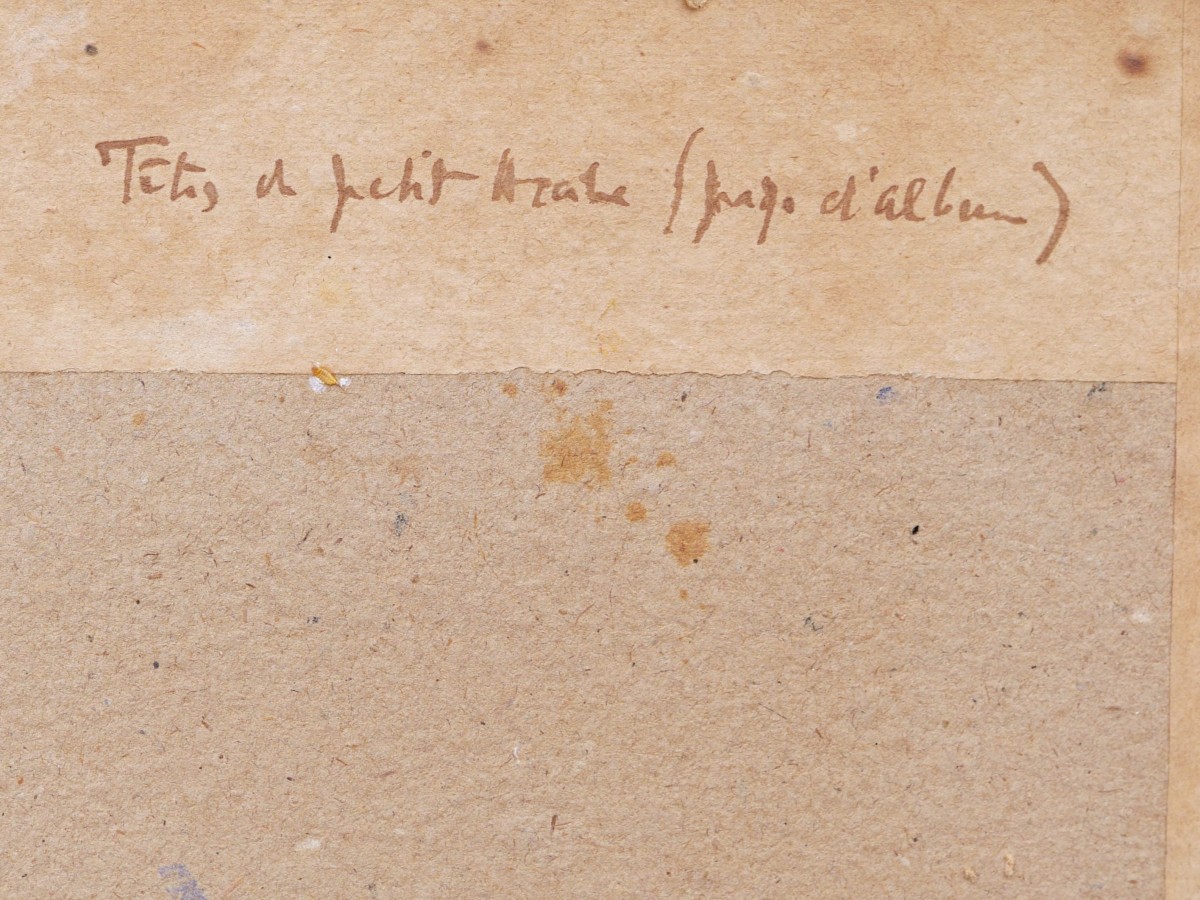 Têtes de petit Arabe (page d'album)